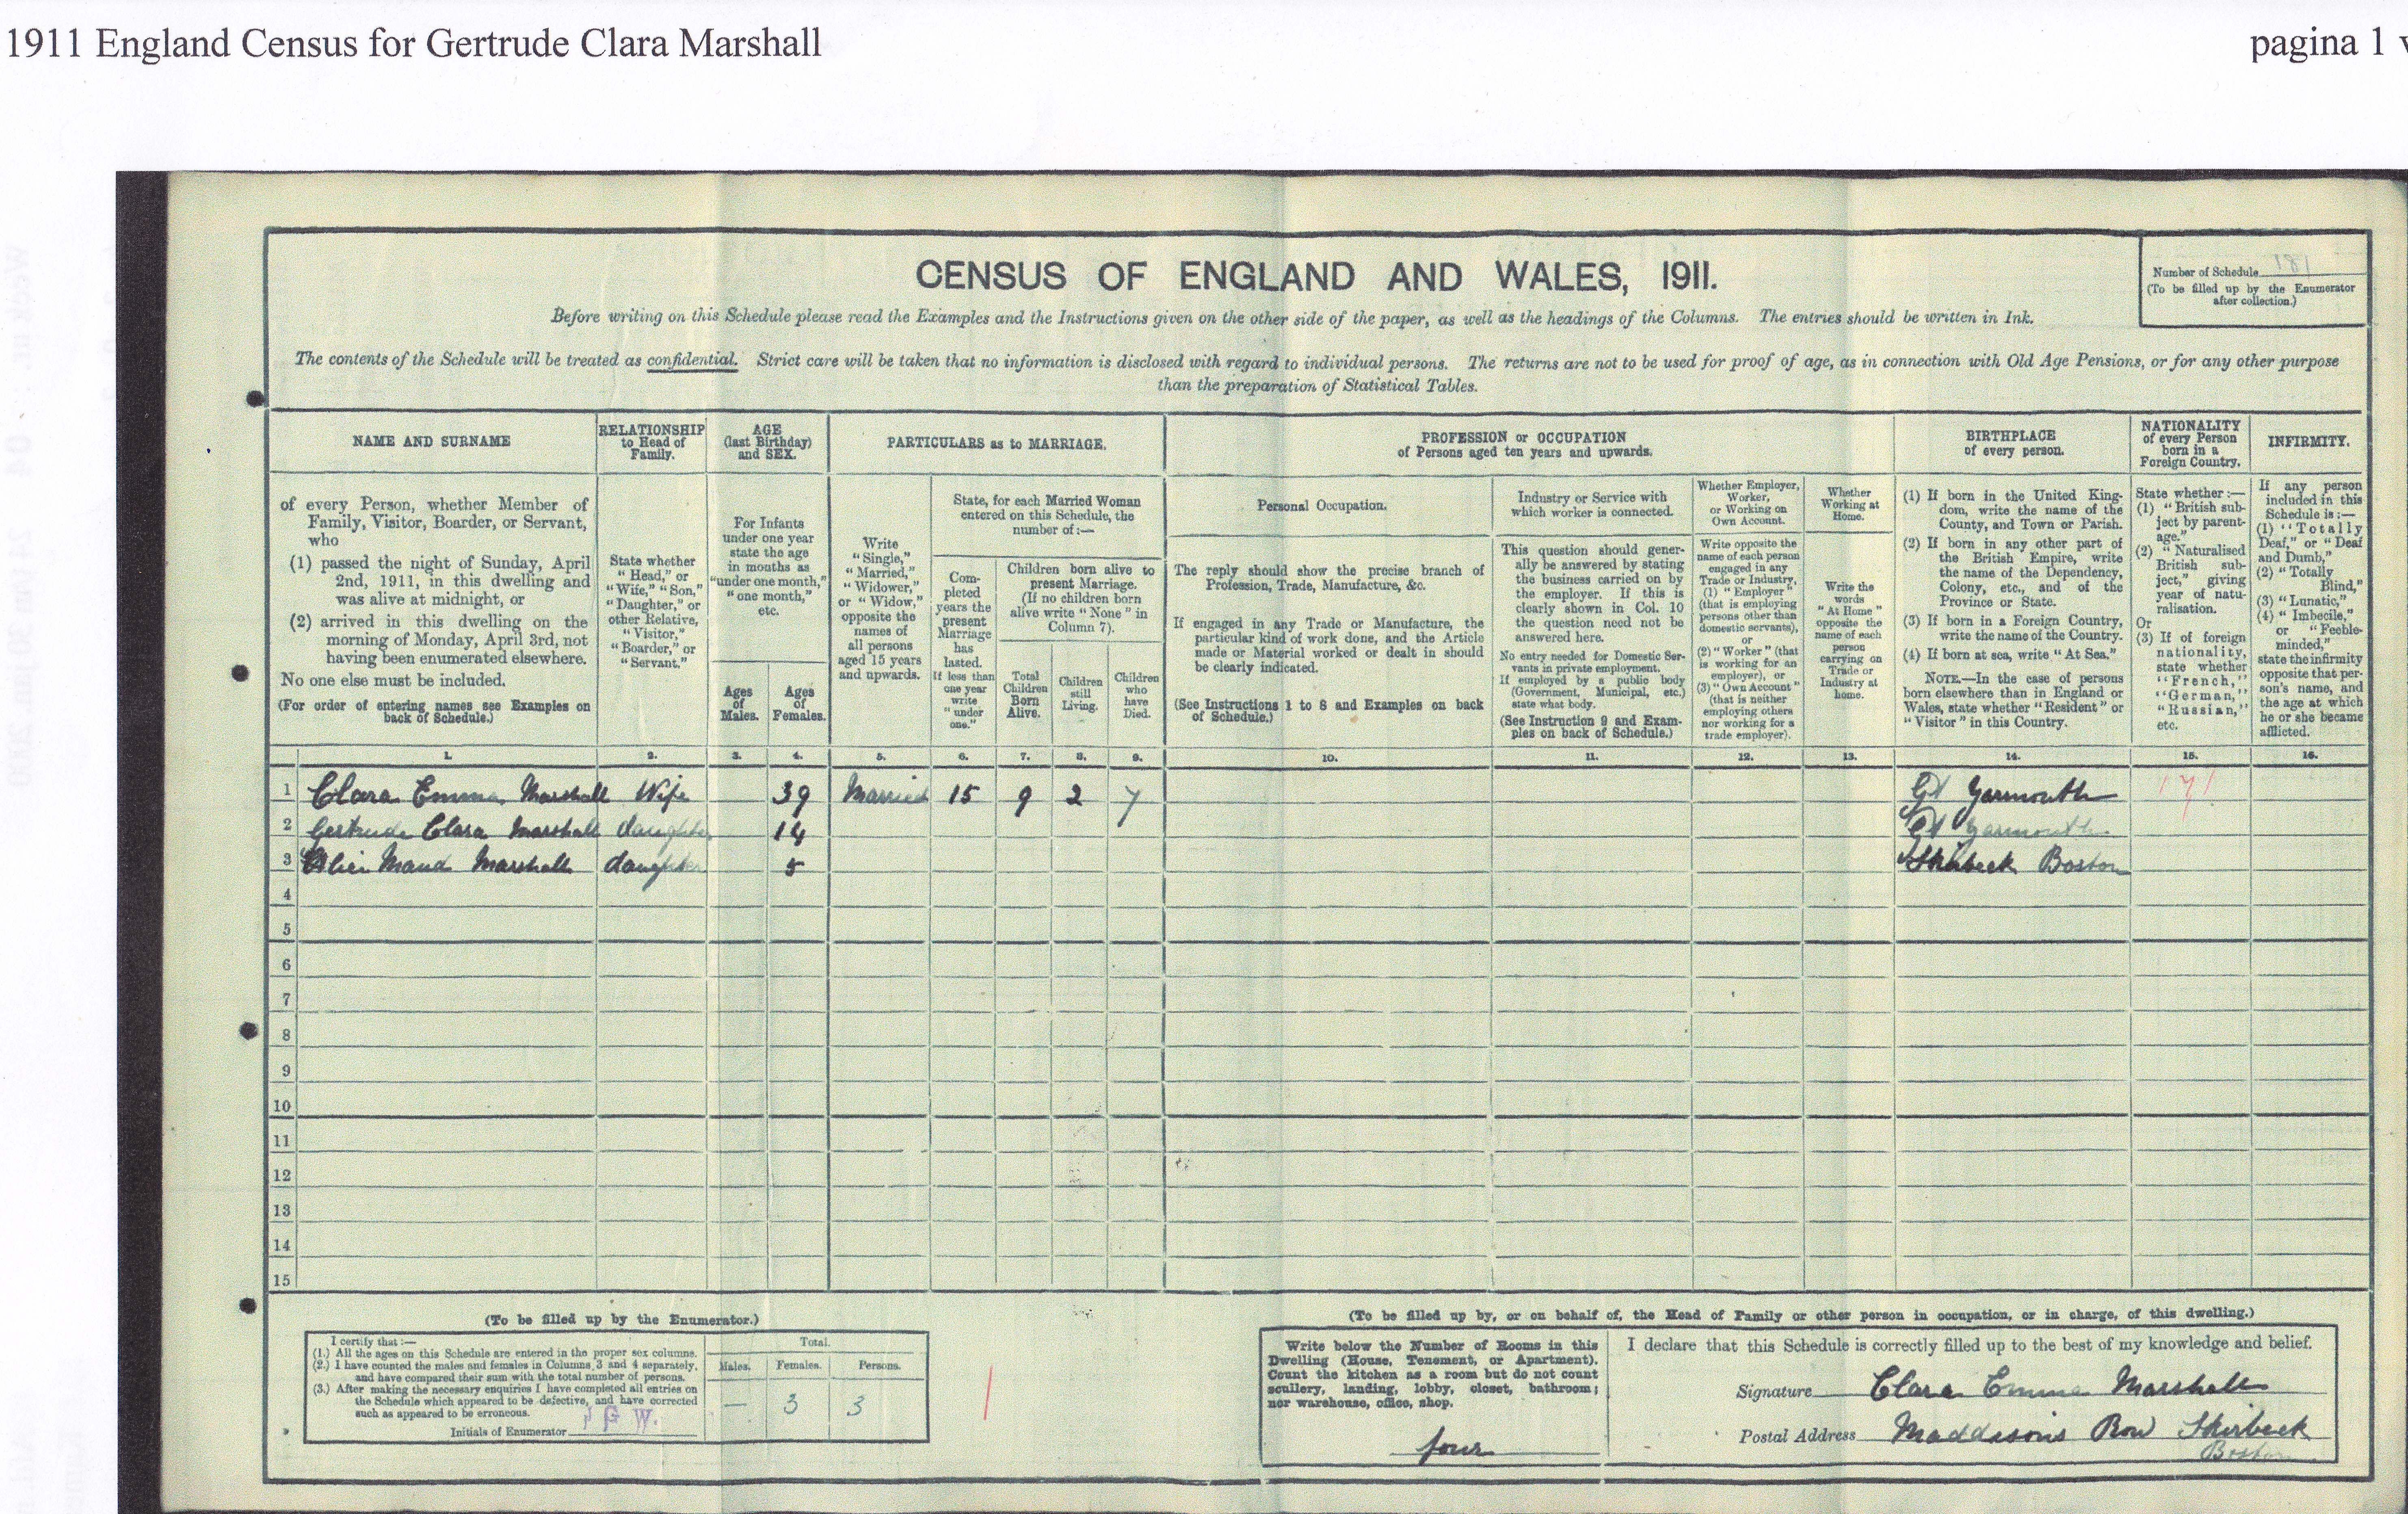 1911 England Census for Gertrude Clara Marshall
pagina 1 v
CENSUS OF ENGLAND AND WALES, 1911.
Number of Schedule 181
(To be filled up by the Enumerator
after collection.)
Before writing on this Schedule please read the Examples and the Instructions given on the other side of the paper, as well as the headings of the Columns. The entries should be written in Ink.
The contents of the Schedule will be treated as confidential. Strict care will be taken that no information is disclosed with regard to individual persons. The returns are not to be used for proof of age, as in connection with Old Age Pensions, or for any other purpose
than the preparation of Statistical Tables.
NAME AND SURNAME
of every Person, whether Member of
Family, Visitor, Boarder, or Servant,
who
(1) passed the night of Sunday, April
2nd, 1911, in this dwelling and
was alive at midnight, or
(2) arrived in this dwelling on the
morning of Monday, April 3rd, not
having been enumerated elsewhere.
No one else must be included.
(For order of entering names see Examples on
back of Schedule.)
RELATIONSHIP
to Head of
Family.
State whether
"Head," or
"Wife," "Son,"
"Daughter," or
other Relative,
"Visitor,"
"Boarder," or
"Servant."
AGE
(last Birthday)
and SEX.
For Infants
under one year
state the age
in months as
"under one month,"
"one month,"
etc.
Ages
of
Males.
Ages
of
Females.
PARTICULARS as to MARRIAGE.
Write
"Single,"
"Married,"
"Widower,"
or "Widow,"
opposite the
names of
all persons
aged 15 years
and upwards.
State, for each Married Woman
entered on this Schedule, the
number of:—
Com-
pleted
years the
present
Marriage
has
lasted.
If less than
one year
write
"under
one."
Children born alive to
present Marriage.
(If no children born
alive write "None" in
Column 7).
Total
Children
Born
Alive.
Children
still
Living.
Children
who
have
Died.
PROFESSION or OCCUPATION
of Persons aged ten years and upwards.
Personal Occupation.
The reply should show the precise branch of
Profession, Trade, Manufacture, &c.
If engaged in any Trade or Manufacture, the
particular kind of work done, and the Article
made or Material worked or dealt in should
be clearly indicated.
(See Instructions 1 to 8 and Examples on back
of Schedule.)
Industry or Service with
which worker is connected.
This question should gener-
ally be answered by stating
the business carried on by
the employer. If this is
clearly shown in Col. 10
the question need not be
answered here.
No entry needed for Domestic Ser-
vants in private employment.
If employed by a public body
(Government, Municipal, etc.)
state what body.
(See Instruction 9 and Exam-
ples on back of Schedule.)
Whether Employer,
Worker,
or Working on
Own Account.
Write opposite the
name of each person
engaged in any
Trade or Industry,
(1) "Employer"
(that is employing
persons other than
domestic servants),
or
(2) "Worker" (that
is working for an
employer), or
(3) "Own Account"
(that is neither
employing others
nor working for a
trade employer).
Whether
Working at
Home.
Write the
words
"At Home"
opposite the
name of each
person
carrying on
Trade or
Industry at
home.
BIRTHPLACE
of every person.
(1) If born in the United King-
dom, write the name of the
County, and Town or Parish.
(2) If born in any other part of
the British Empire, write
the name of the Dependency,
Colony, etc., and of the
Province or State.
(3) If born in a Foreign Country,
write the name of the Country.
(4) If born at sea, write "At Sea."
NOTE.—In the case of persons
born elsewhere than in England or
Wales, state whether "Resident" or
"Visitor" in this Country.
NATIONALITY
of every Person
born in a
Foreign Country.
State whether:—
(1) "British sub-
ject by parent-
age."
(2) "Naturalised
British sub-
ject," giving
year of natu-
ralisation.
Or
(3) If of foreign
nationality,
state whether
"French,"
"German,"
"Russian,"
etc.
INFIRMITY.
If any person
included in this
Schedule is:—
(1) "Totally
Deaf," or "Deaf
and Dumb,"
(2) "Totally
Blind,"
(3) "Lunatic,"
(4) "Imbecile,"
or "Feeble-
minded,"
state the infirmity
opposite that per-
son's name, and
the age at which
he or she became
afflicted.
1. 2. 3. 4. 5. 6. 7. 8. 9. 10. 11. 12. 13. 14. 15. 16.
1 Clara Emma Marshall Wife 39 Married 15 9 2 7 Gt Yarmouth 171
2 Gertrude Clara Marshall daughter 14 Gt Yarmouth
3 Alice Maud Marshall daughter 5 Skirbeck Boston
4
5
6
7
8
9
10
11
12
13
14
15
(To be filled up by the Enumerator.)
I certify that:—
(1.) All the ages on this Schedule are entered in the proper sex columns.
(2.) I have counted the males and females in Columns 3 and 4 separately,
and have compared their sum with the total number of persons.
(3.) After making the necessary enquiries I have completed all entries on
the Schedule which appeared to be defective, and have corrected
such as appeared to be erroneous.
Initials of Enumerator J G W.
Total.
Males. Females. Persons.
— 3 3
(To be filled up by, or on behalf of, the Head of Family or other person in occupation, or in charge, of this dwelling.)
Write below the Number of Rooms in this
Dwelling (House, Tenement, or Apartment).
Count the kitchen as a room but do not count
scullery, landing, lobby, closet, bathroom;
nor warehouse, office, shop.
four
I declare that this Schedule is correctly filled up to the best of my knowledge and belief.
Signature Clara Emma Marshall
Postal Address Maddisons Row Skirbeck
Boston